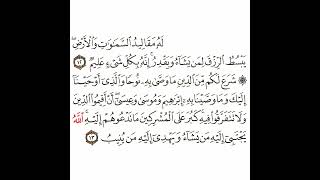 لَهُۥ مَقَالِيدُ ٱلسَّمَٰوَٰتِ وَٱلْأَرْضِۖ
يَبْسُطُ ٱلرِّزْقَ لِمَن يَشَآءُ وَيَقْدِرُۚ إِنَّهُۥ بِكُلِّ شَىْءٍ عَلِيمٌ ١٢
۞ شَرَعَ لَكُم مِّنَ ٱلدِّينِ مَا وَصَّىٰ بِهِۦ نُوحًا وَٱلَّذِىٓ أَوْحَيْنَآ
إِلَيْكَ وَمَا وَصَّيْنَا بِهِۦٓ إِبْرَٰهِيمَ وَمُوسَىٰ وَعِيسَىٰٓۖ أَنْ أَقِيمُوا۟ ٱلدِّينَ
وَلَا تَتَفَرَّقُوا۟ فِيهِۚ كَبُرَ عَلَى ٱلْمُشْرِكِينَ مَا تَدْعُوهُمْ إِلَيْهِۚ ٱللَّهُ
يَجْتَبِىٓ إِلَيْهِ مَن يَشَآءُ وَيَهْدِىٓ إِلَيْهِ مَن يُنِيبُ ١٣